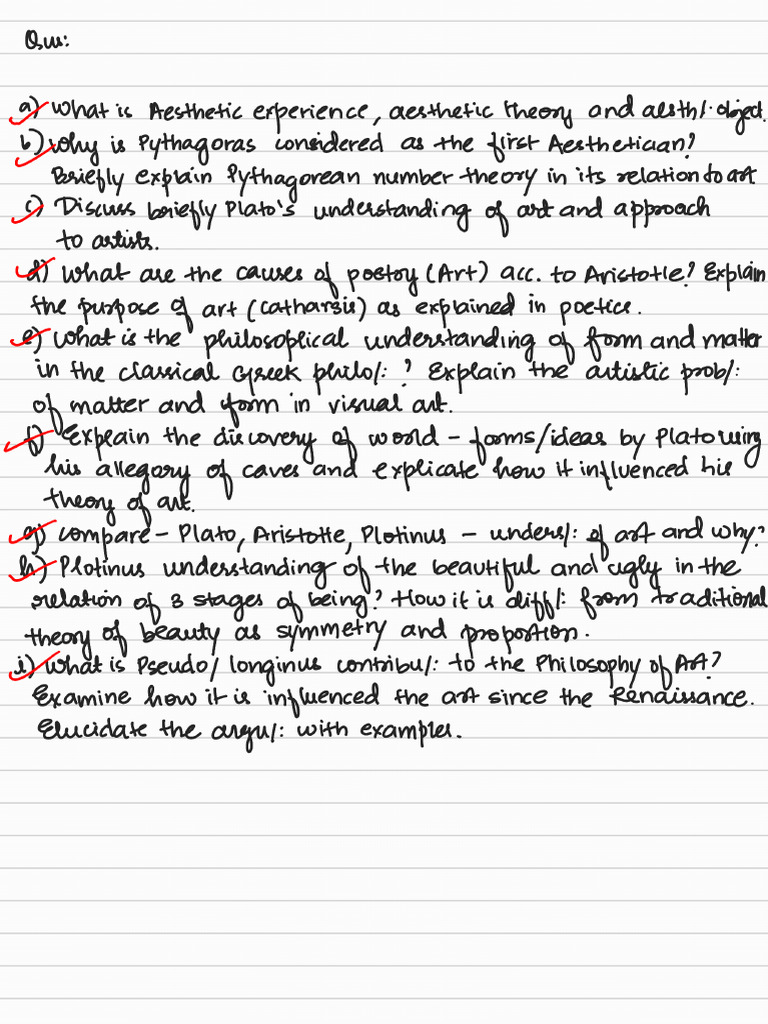 Qus:
a) What is Aesthetic experience, aesthetic theory and aesth/. object.
b) Why is Pythagoras considered as the first Aesthetician?
Briefly explain Pythagorean number theory in its relation to art
c) Discuss briefly Plato's understanding of art and approach
to artists.
d) What are the causes of poetry (Art) acc. to Aristotle? Explain
the purpose of art (catharsis) as explained in poetics.
e) What is the philosophical understanding of form and matter
in the classical Greek philo/: ? Explain the artistic prob/:
of matter and form in visual art.
f) Explain the discovery of world - forms/ideas by Plato using
his allegory of caves and explicate how it influenced his
theory of art.
g) compare - Plato, Aristotle, Plotinus - unders/: of art and why?
h) Plotinus understanding of the beautiful and ugly in the
relation of 3 stages of being? How it is diff/: from traditional
theory of beauty as symmetry and proportion.
i) What is Pseudo/ longinus contribu/: to the Philosophy of Art?
Examine how it is influenced the art since the Renaissance.
Elucidate the argu/: with examples.